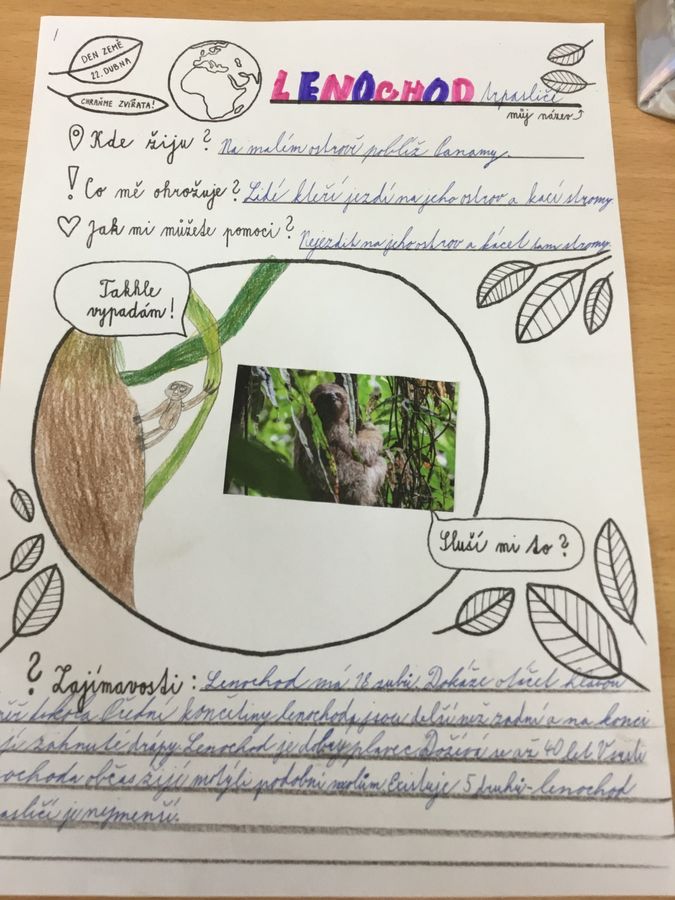 1
DEN ZEMĚ
22. DUBNA
CHRAŇME ZVÍŘATA!
LENOCHOD trpasličí
můj název
Kde žiju? Na malém ostrově poblíž Panamy.
Co mě ohrožuje? Lidé kteří jezdí na jeho ostrov a kácí stromy.
Jak mi můžete pomoci? Nejezdit na jeho ostrov a kácet tam stromy.
Takhle
vypadám!
Sluší mi to?
? Zajímavosti: Lenochod má 18 zubů. Dokáže otáčet hlavou
dokola. Přední končetiny lenochoda jsou delší než zadní a na konci
jí zahnuté drápy. Lenochod je dobrý plavec. Dožívá se až 40 let. V srsti
ochoda občas žijí motýli podobní molům. Existuje 5 druhů - lenochod
asličí je nejmenší.